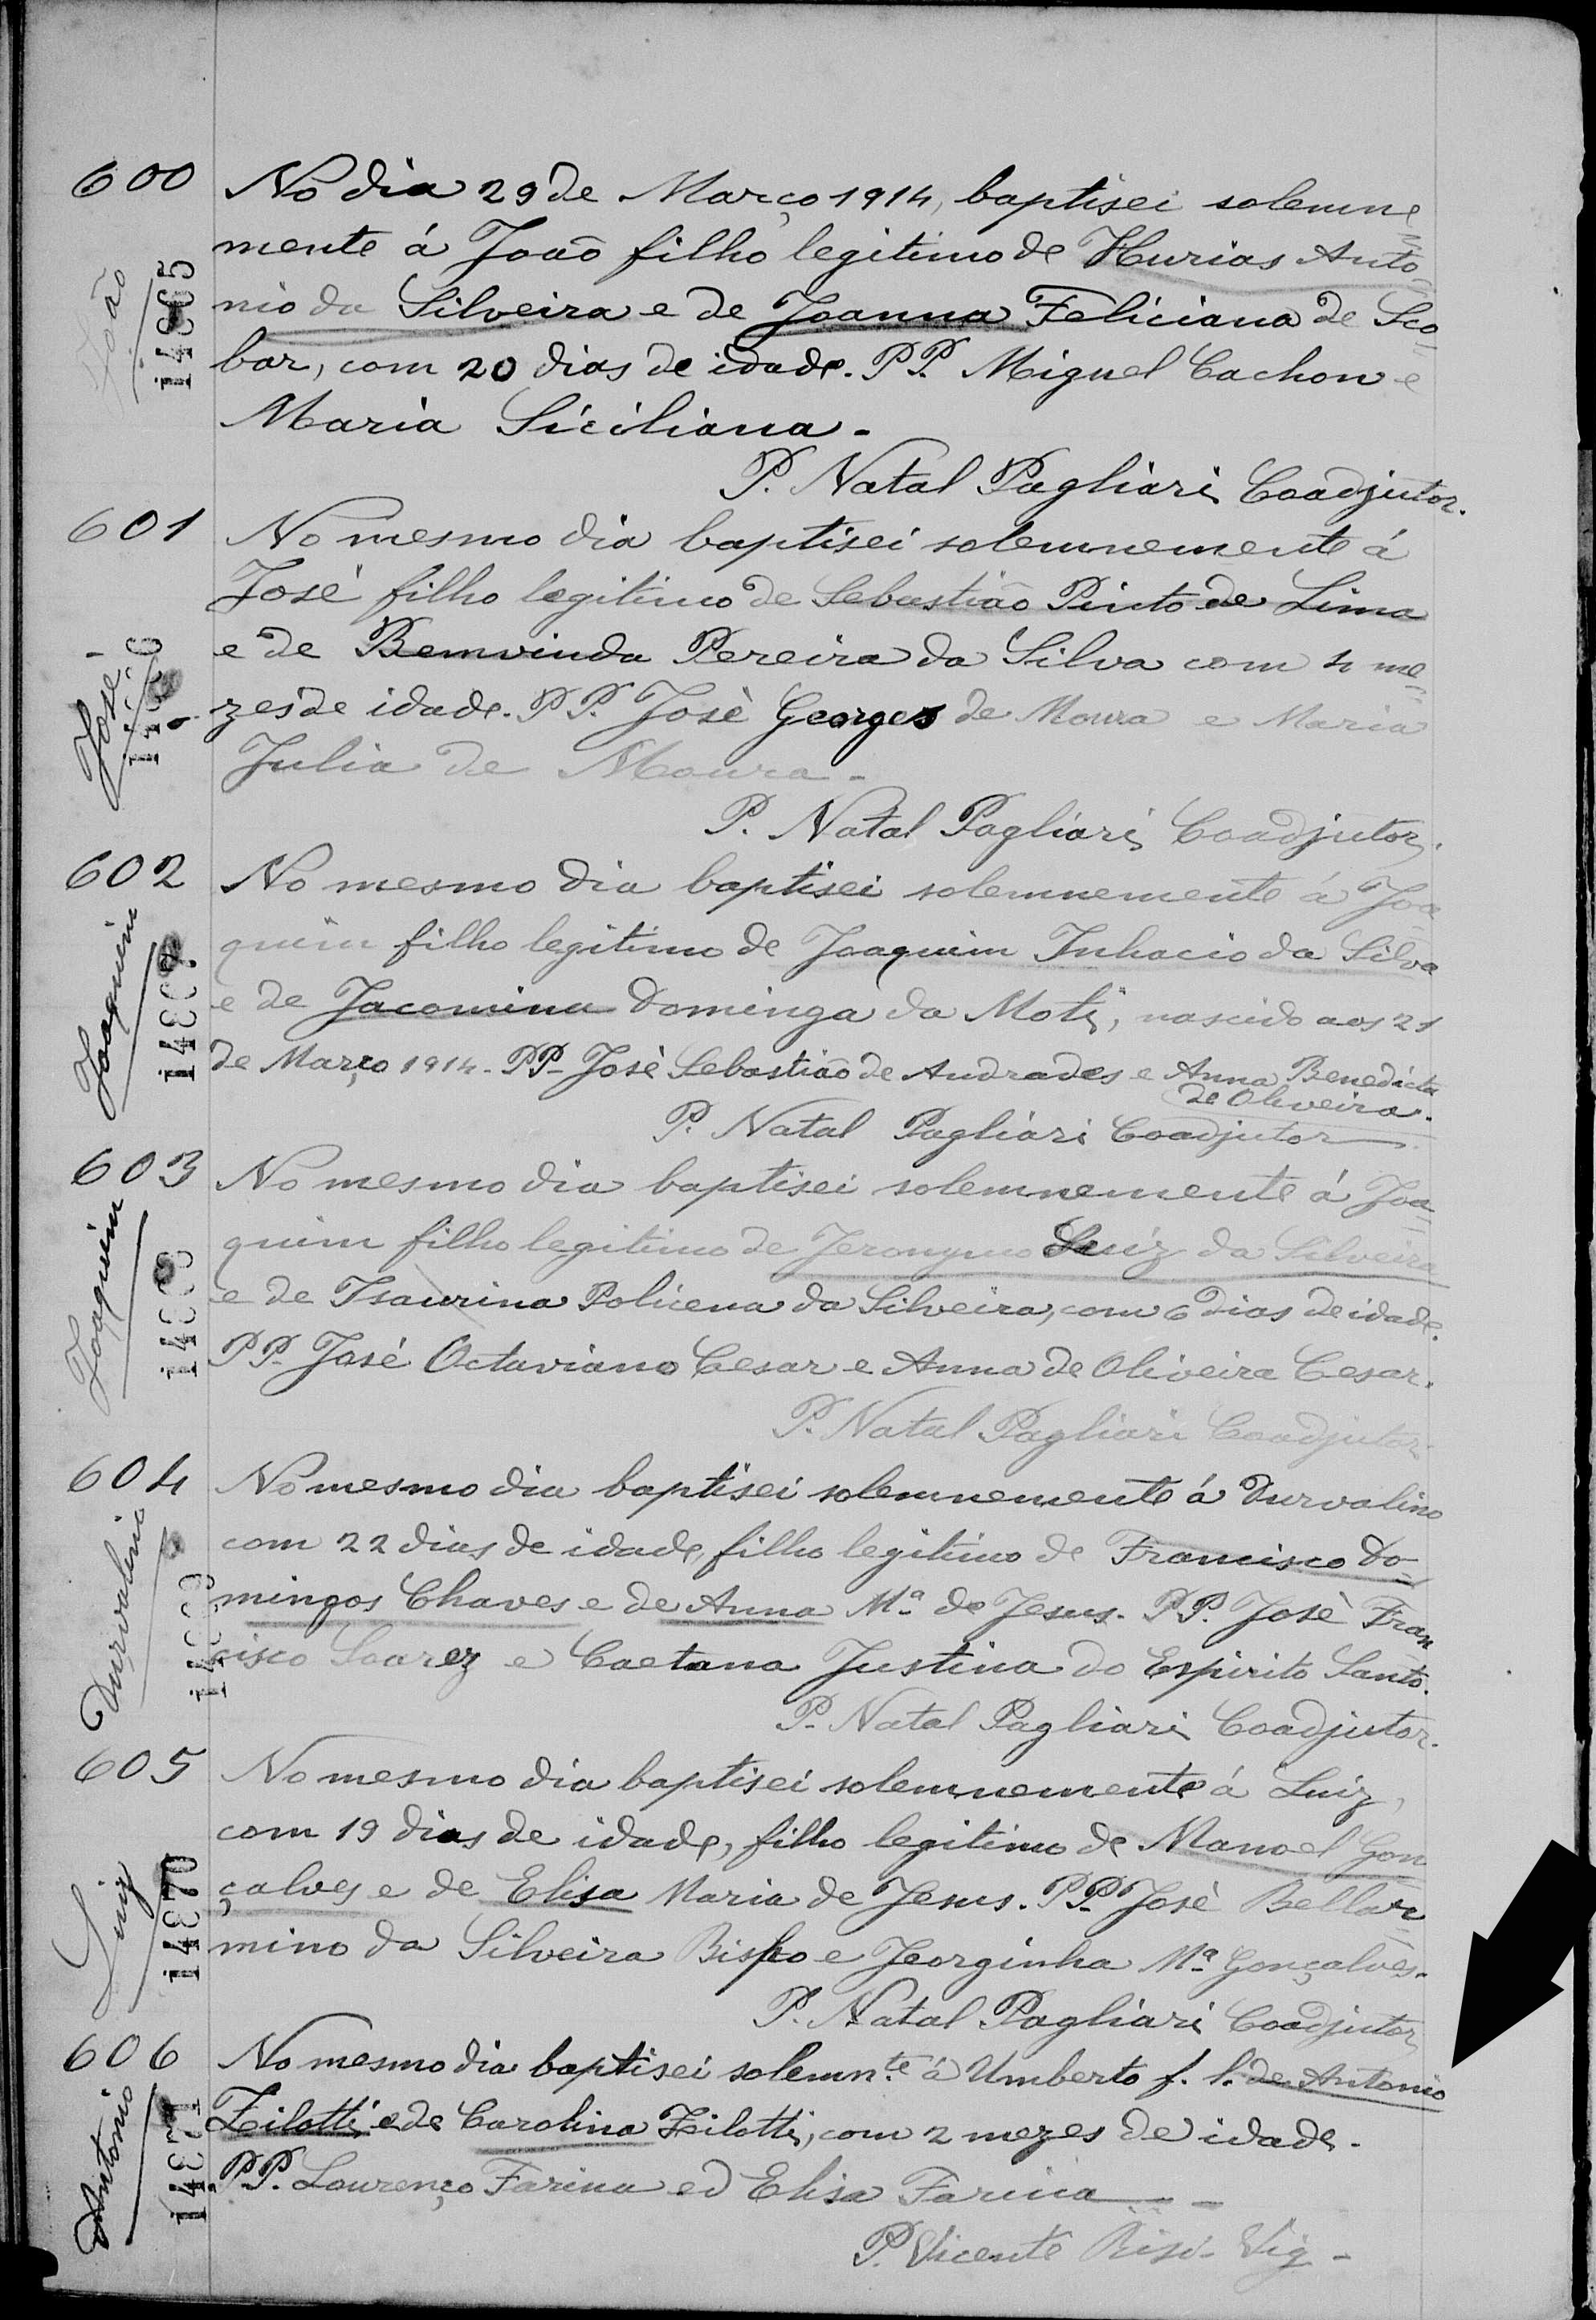 600
No dia 29 de Março 1914, baptisei solemne
mente á João filho legitimo de Hurias Anto
nio da Silveira e de Joanna Feliciana de Sco-
bar, com 20 dias de idade. PP. Miguel Cachon e
Maria Siciliana.
P. Natal Pagliari Coadjutor.
João
601
No mesmo dia baptisei solemnemente á
José filho legitimo de Sebastião Pinto de Lima
e de Bemvinda Pereira da Silva com 4 me-
zes de idade. PP. José Georges de Moura e Maria
Julia de Moura.
P. Natal Pagliari Coadjutor.
José
602
No mesmo dia baptisei solemnemente á Joa
quim filho legitimo de Joaquim Inhacio da Silva
e de Jacomina Dominga da Moti, nascido aos 21
de Março 1914. PP. José Sebastião de Andrades e Anna Benedicta
de Oliveira.
P. Natal Pagliari Coadjutor
Joaquim
603
No mesmo dia baptisei solemnemente á Joa-
quim filho legitimo de Jeronymo Luiz da Silveira
e de Isaurina Policena da Silveira, com 6 dias de idade.
PP. José Octaviano Cesar e Anna de Oliveira Cesar.
P. Natal Pagliari Coadjutor
Joaquim
604
No mesmo dia baptisei solemnemente á Durvalino
com 22 dias de idade, filho legitimo de Francisco Do-
mingos Chaves e de Anna Mª de Jesus. PP. José Fran
cisco Soarez e Caetana Justina do Espirito Santo.
P. Natal Pagliari Coadjutor.
Durvalino
605
No mesmo dia baptisei solemnemente á Luiz,
com 19 dias de idade, filho legitimo de Manoel Gon
çalves e de Elisa Maria de Jesus. PP. José Bellar
mino da Silveira Bispo e Jeorginha Mª Gonçalves.
P. Natal Pagliari Coadjutor
Luiz
14870
606
No mesmo dia baptisei solemn.te á Umberto f. l. de Antonio
Zilotti e de Carolina Zilotti, com 2 mezes de idade.
PP. Lourenço Farina ed Elisa Farina
P. Vicente Vig.
Antonio
14871